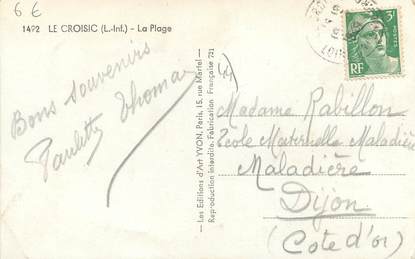 6 €
1492 LE CROISIC (L.-Inf.) - La Plage
Bons souvenirs
Paulette Thomas
— Les Editions d'Art YVON, Paris, 15, rue Martel —
Reproduction interdite. Fabrication Française
3F
RF
POSTES
Madame Rabillon
École Maternelle Maladière
Maladière
Dijon
(Cote d'or)